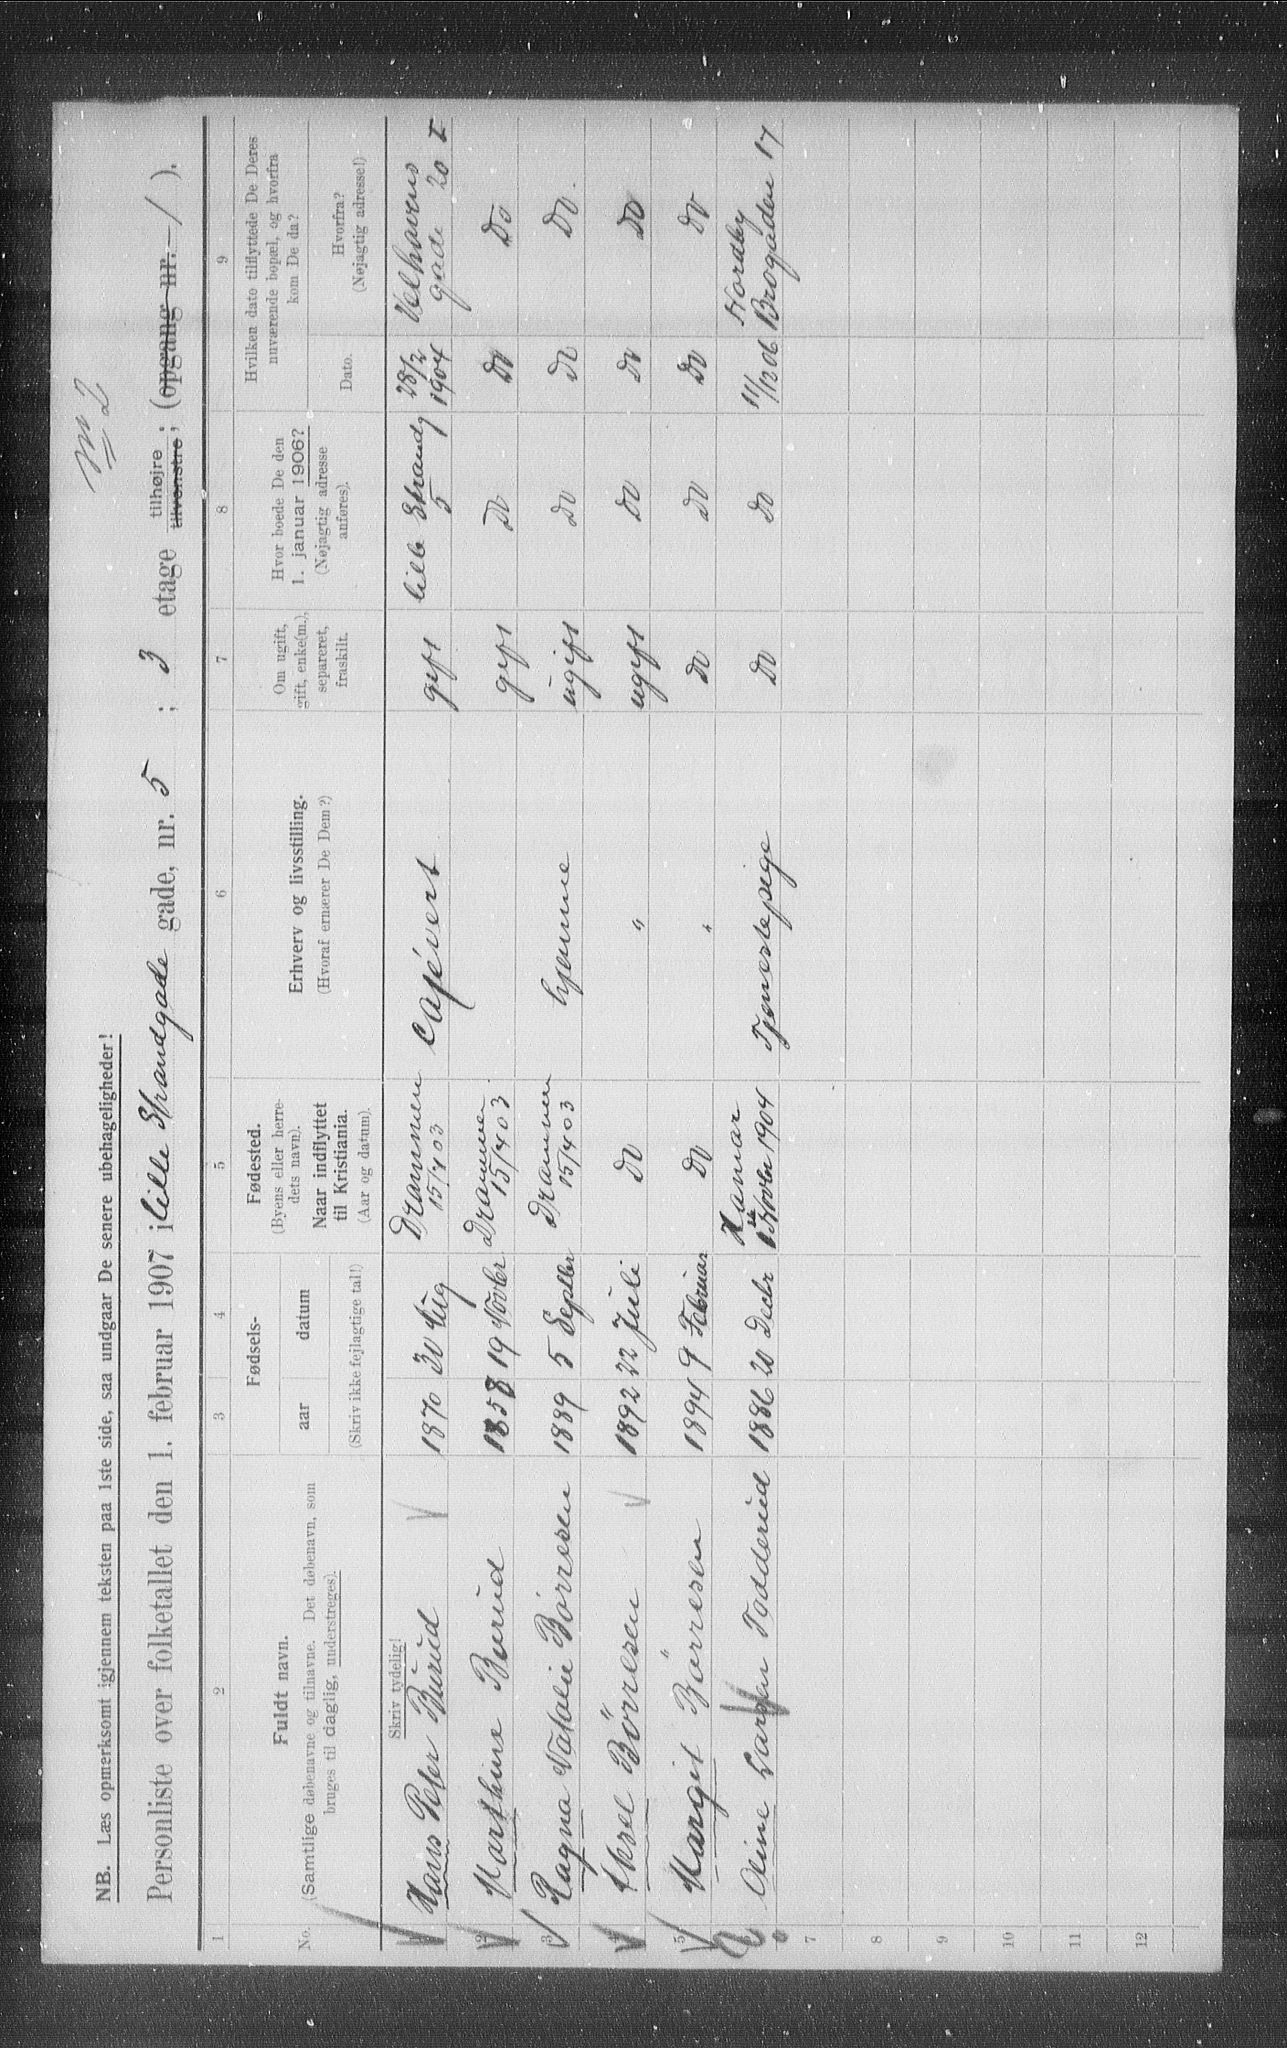 m 2
NB. Læs opmerksomt igjennem teksten paa 1ste side, saa undgaar De senere ubehageligheder!
Personliste over folketallet den 1. februar 1907 i Lille Strandgade gade, nr. 5 ; 3 etage tilhøjre tilvenstre ; (opgang nr. / ).
1 2 3 4 5 6 7 8 9
No. Fuldt navn. (Samtlige døbenavne og tilnavne. Det døbenavn, som bruges til daglig, understreges).
Fødsels- aar datum (Skriv ikke fejlagtige tal!)
Fødested. (Byens eller herredets navn). Naar indflyttet til Kristiania. (Aar og datum).
Erhverv og livsstilling. (Hvoraf ernærer De Dem?)
Om ugift, gift, enke(m.), separeret, fraskilt.
Hvor boede De den 1. januar 1906? (Nøjagtig adresse anføres).
Hvilken dato tilflyttede De Deres nuværende bopæl, og hvorfra kom De da?
Dato. Hvorfra? (Nøjagtig adresse!)
Skriv tydelig!
1 Hans Peter Burud 1870 30 Aug Drammen 15/4 03 Cafévert gift Lille Strandg 5 28/2 1904 Velhavens gade 20 I
2 Marthine Burud 1858 19 Novbr Drammen 15/4 03 gift Do Do Do
3 Ragna Natalie Börresen 1889 5 Septbr Drammen 15/4 03 hjemme ugift Do Do Do.
4 Aksel Börresen 1892 22 Juli Do " ugift Do Do Do
5 Margit Börresen 1894 9 Februar Do " Do Do Do Do
6 Oline Larsen Todderud 1886 20 Decbr Hamar Novbr 1904 Tjenestepige Do Do 11/12 06 Nordby Brogaden 17
7
8
9
10
11
12